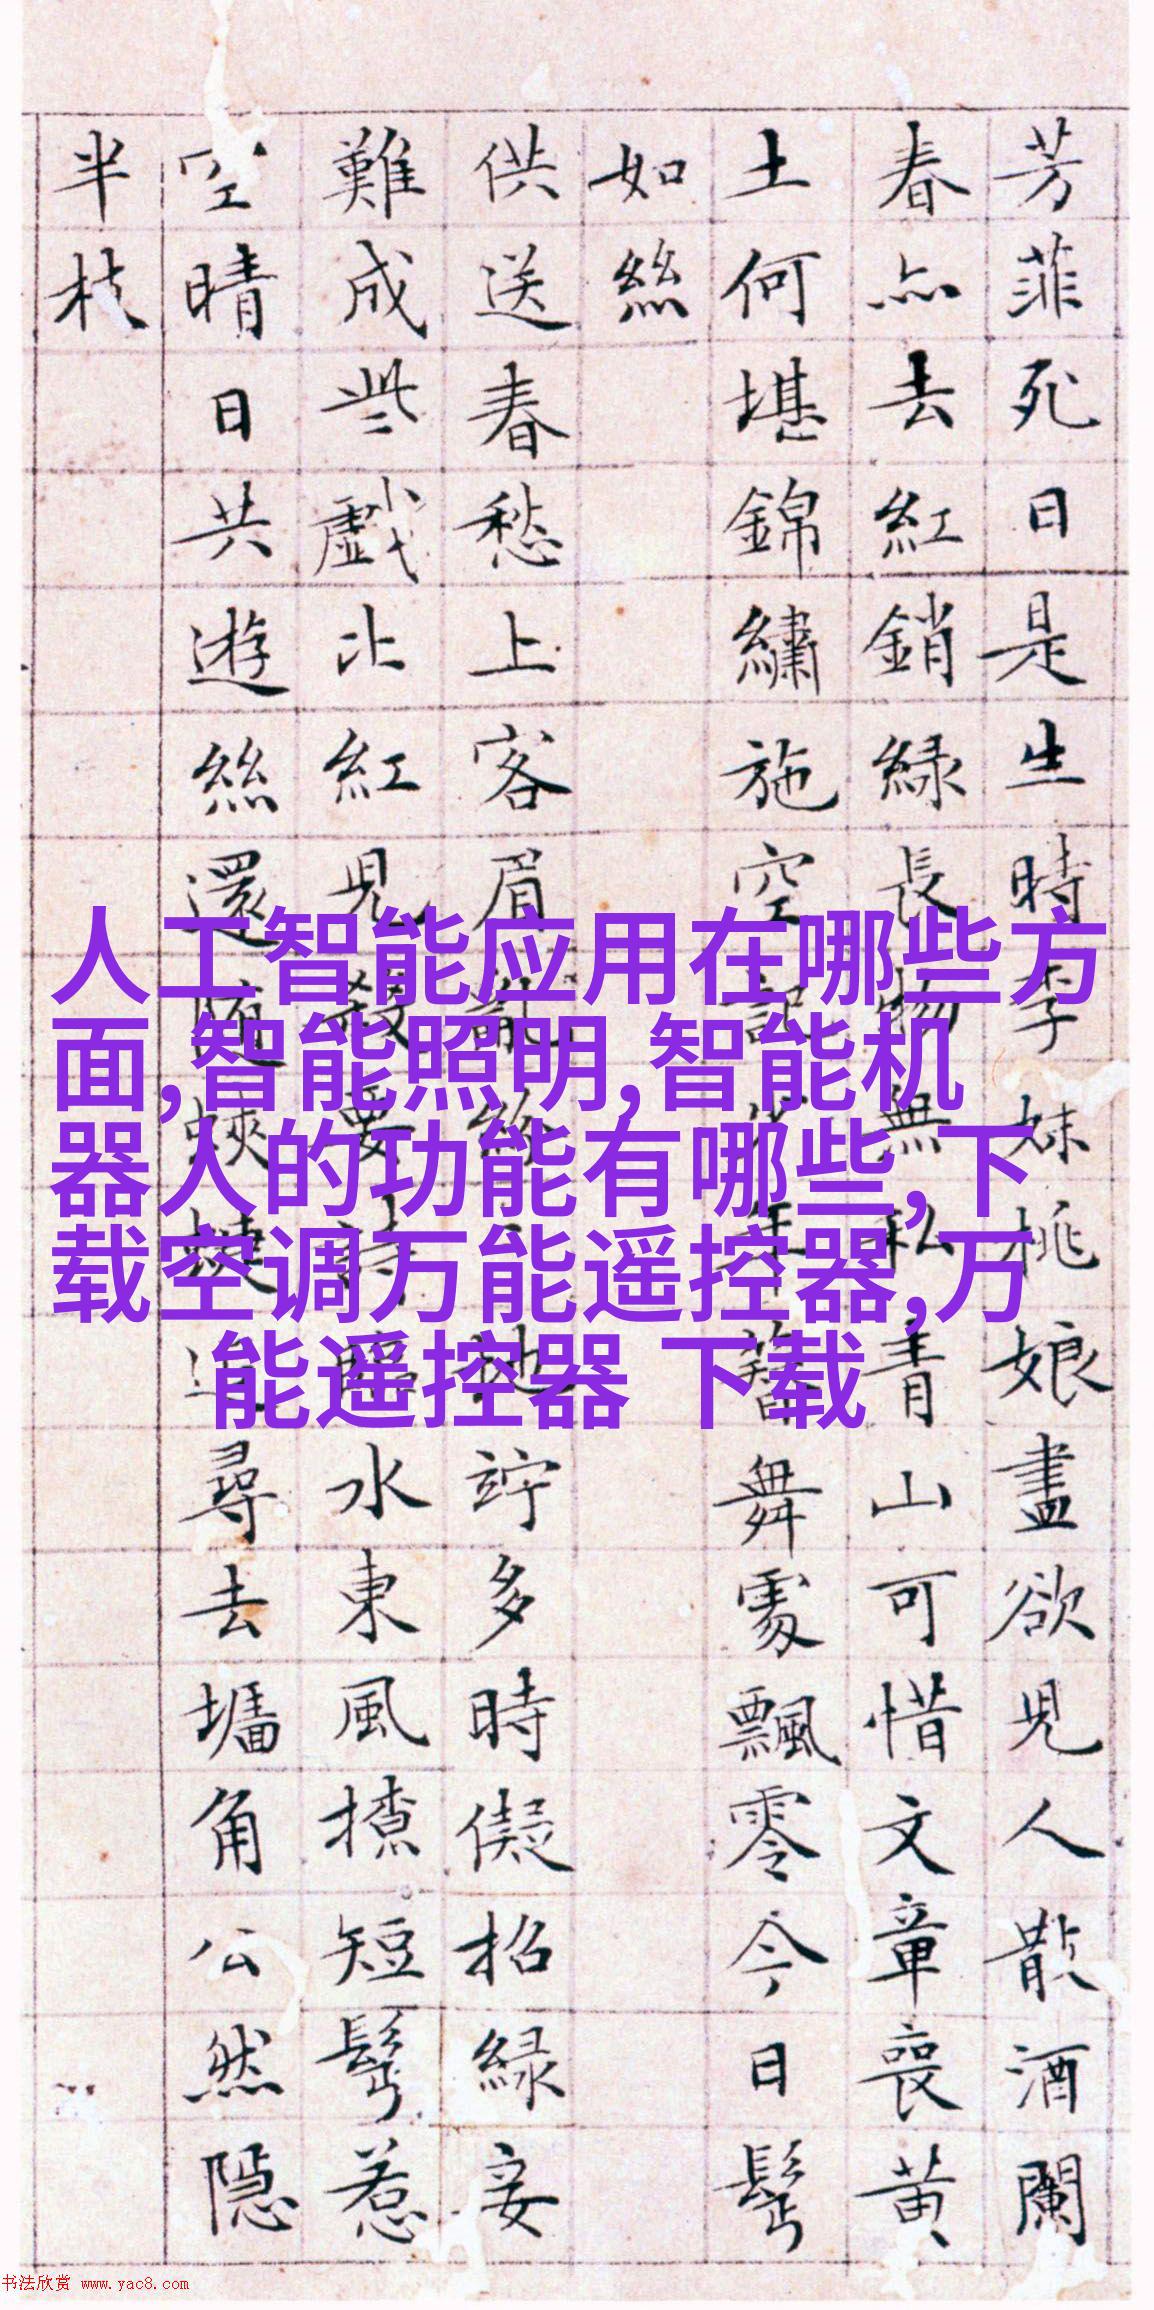 芳菲死日是生時李妹桃娘盡欲兒人散酒闌
春亦去紅銷綠長物無私青山可惜文章喪黄
土何堪錦繡施空記少年簪舞處飄零今日鬢
如絲
供送春愁上客眉亂紛紛地竚多時儗招綠妾
難成些戲比紅兒殺要詩臨水東風撩短鬢惹
空晴日共遊絲還隨蛺蝶追尋去墻角公然隱
半枝
人工智能应用在哪些方
面,智能照明,智能机
器人的功能有哪些,下
载空调万能遥控器,万
能遥控器 下载
书法欣赏 www.yac8.com